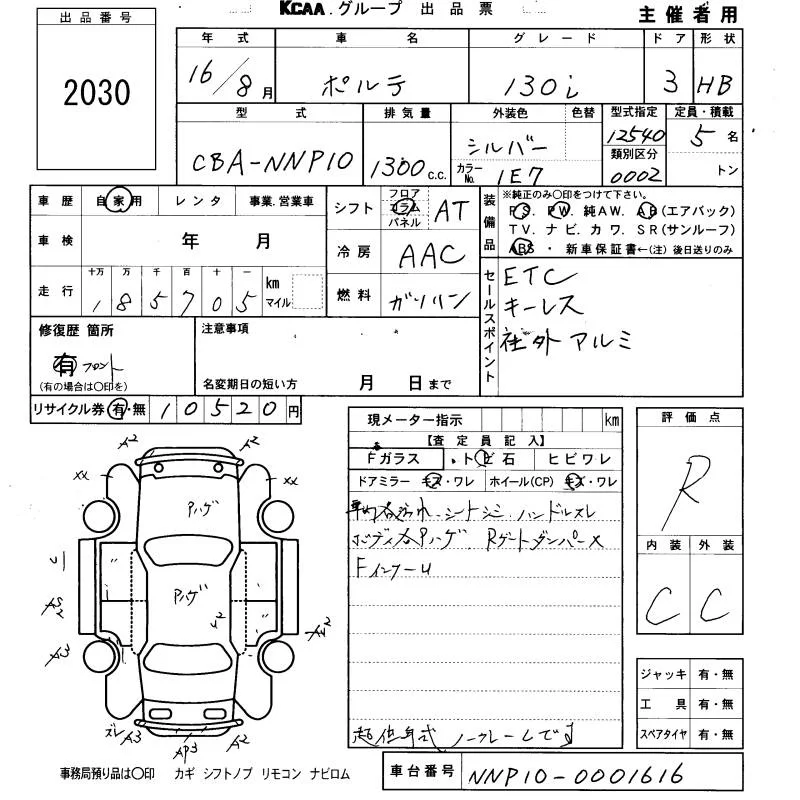 KCAA.グループ 出品票
主催者用
出品番号
2030
年式 車名 グレード ドア 形状
16/8月 ポルテ 130i 3 HB
型式 排気量 外装色 色替 型式指定 定員・積載
CBA-NNP10 1300c.c. シルバー 12540 5名
カラーNo. 1E7 類別区分 0002 トン
車歴 自家用 レンタ 事業.営業車
シフト フロア コラム パネル AT
車検 年 月
冷房 AAC
走行 十万 万 千 百 十 一 km マイル
185705
燃料 ガソリン
装備品 ※純正のみ○印をつけて下さい。
PS. PW. 純AW. AB(エアバック)
TV. ナビ. カワ. SR(サンルーフ)
ABS・新車保証書←(注)後日送りのみ
セールスポイント
ETC
キーレス
社外アルミ
修復歴 箇所
有 フロント
(有の場合は○印を)
注意事項
名変期日の短い方 月 日まで
リサイクル券 有・無 10520円
現メーター指示 km
【査定員記入】
Fガラス ・トビ石 ヒビワレ
ドアミラー キズ・ワレ ホイール(CP) キズ・ワレ
シートシミ ハンドルスレ
Pハゲ. Rゲートダンパー×
Fインナーu
ノークレームです
評価点
R
内装 外装
C C
ジャッキ 有・無
工具 有・無
スペアタイヤ 有・無
A2 A2
A2
xx xx
Pハゲ
Pハゲ
A3 A3
ズレ A3 A2
AP3
事務局預り品は○印 カギ シフトノブ リモコン ナビロム
車台番号 NNP10-0001616